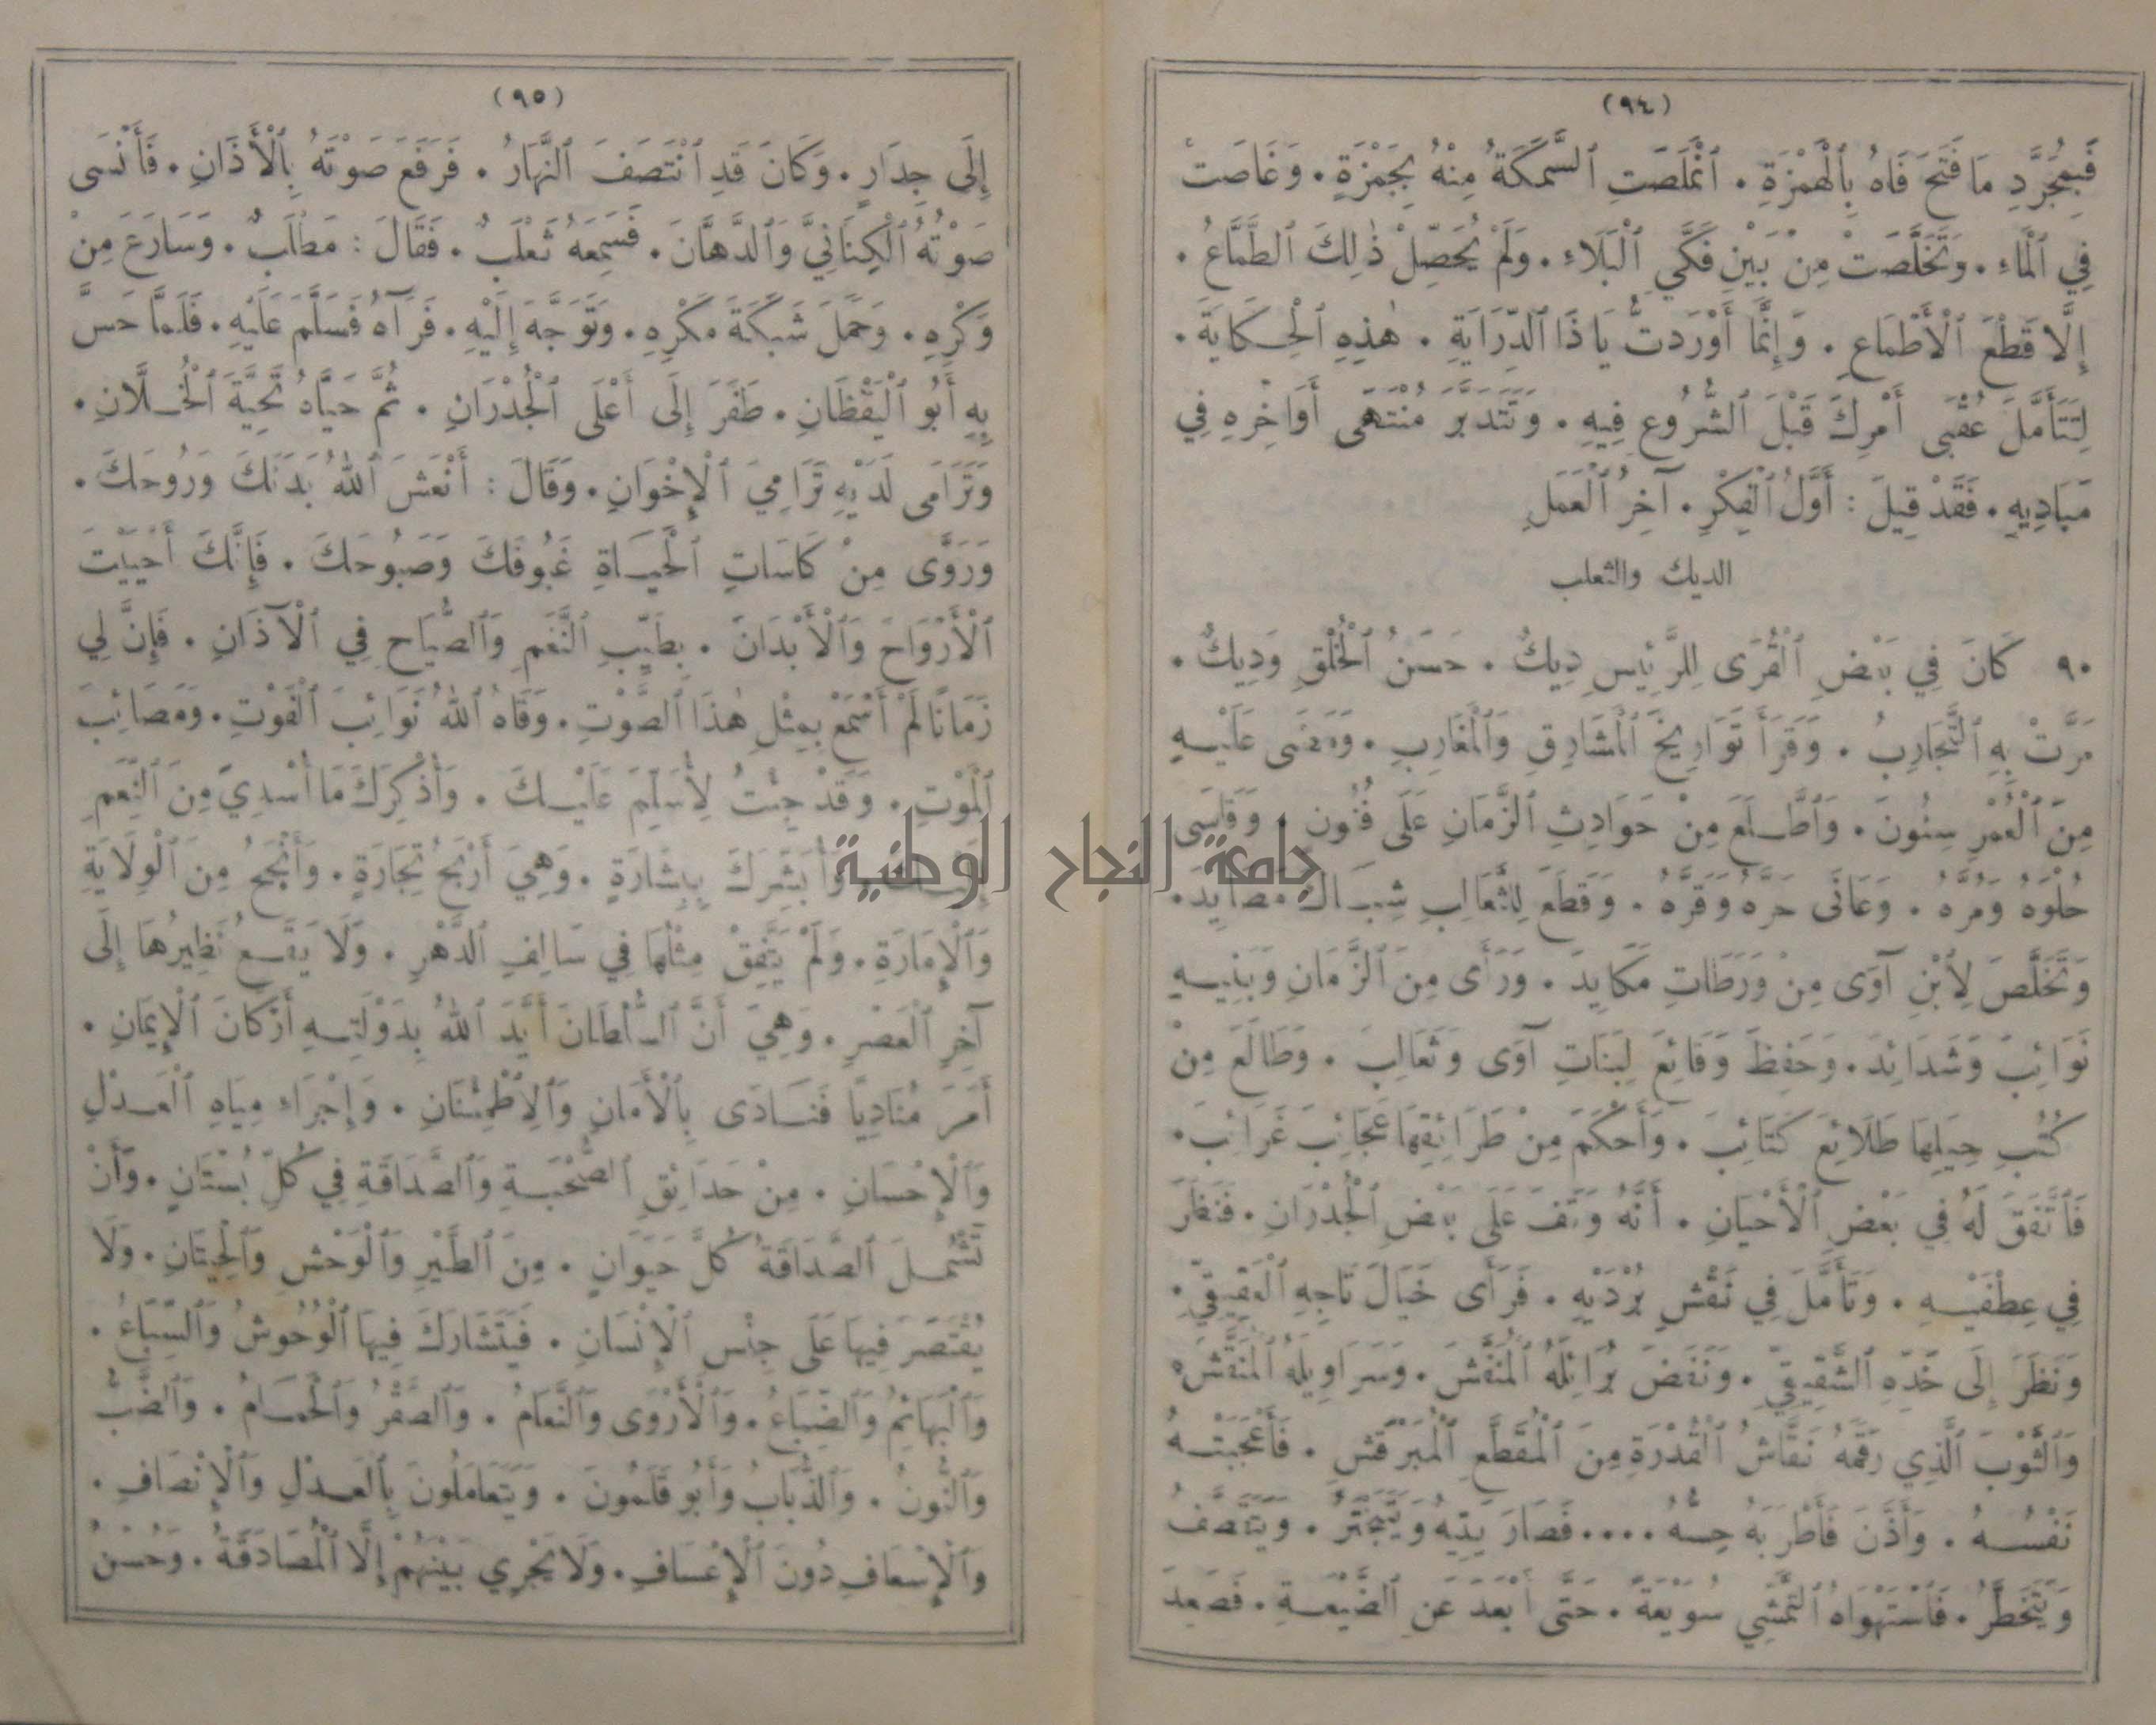 (٩٤)
فَبِمُجَرَّدِ مَا فَتَحَ فَاهُ بِٱلْهَمْزَةِ . ٱنْمَلَصَتِ ٱلسَّمَكَةُ مِنْهُ بِجَمْزَةٍ . وَغَاصَتْ
فِي ٱلْمَاءِ . وَتَخَلَّصَتْ مِنْ بَيْنِ فَكَّيِ ٱلْبَلَاءِ . وَلَمْ يُحَصِّلْ ذٰلِكَ ٱلطَّمَّاعُ .
إِلَّا قَطْعَ ٱلْأَطْمَاعِ . وَإِنَّمَا أَوْرَدتُّ يَا ذَا ٱلدِّرَايَةِ . هٰذِهِ ٱلْحِكَايَةَ .
لِتَتَأَمَّلَ عُقْبَى أَمْرِكَ قَبْلَ ٱلشُّرُوعِ فِيهِ . وَتَتَدَبَّرَ مُنْتَهَى أَوَاخِرِهِ فِي
مَبَادِيهِ . فَقَدْ قِيلَ : أَوَّلُ ٱلْفِكْرِ . آخِرُ ٱلْعَمَلِ
الديك والثعلب
٩٠ كَانَ فِي بَعْضِ ٱلْقُرَى لِلرَّئِيسِ دِيكٌ . حَسَنُ ٱلْخُلْقِ وَدِيكٌ .
مَرَّتْ بِهِ ٱلتَّجَارِبُ . وَقَرَأَ تَوَارِيخَ ٱلْمَشَارِقِ وَٱلْمَغَارِبِ . وَمَضَى عَلَيْهِ
مِنَ ٱلْعُمْرِ سِنُونَ . وَٱطَّلَعَ مِنْ حَوَادِثِ ٱلزَّمَانِ عَلَى فُنُونٍ . وَقَاسَى
حُلْوَهُ وَمُرَّهُ . وَعَانَى حَرَّهُ وَقَرَّهُ . وَقَطَعَ لِلثَّعَالِبِ شِبَاكَ مَصَايِدَ .
وَتَخَلَّصَ لِٱبْنِ آوَى مِنْ وَرَطَاتِ مَكَايِدَ . وَرَأَى مِنَ ٱلزَّمَانِ وَبَنِيهِ
نَوَائِبَ وَشَدَائِدَ . وَحَفِظَ وَقَائِعَ لِبَنَاتِ آوَى وَثَعَالِبَ . وَطَالَعَ مِنْ
كُتُبِ حِيَلِهَا طَلَائِعَ كَتَائِبَ . وَأَحْكَمَ مِنْ طَرَائِقِهَا عَجَائِبَ غَرَائِبَ .
فَٱتَّفَقَ لَهُ فِي بَعْضِ ٱلْأَحْيَانِ . أَنَّهُ وَقَفَ عَلَى بَعْضِ ٱلْجُدْرَانِ . فَنَظَرَ
فِي عِطْفَيْهِ . وَتَأَمَّلَ فِي نَقْشِ بُرْدَيْهِ . فَرَأَى خَيَالَ تَاجِهِ ٱلْعَقِيقِيِّ .
وَنَظَرَ إِلَى خَدِّهِ ٱلشَّقِيقِيِّ . وَنَفَضَ بُرَائِلَهُ ٱلْمُنَقَّشَ . وَسَرَاوِيلَهُ ٱلْمُنَقَّشَ .
وَٱلثَّوْبَ ٱلَّذِي رَقَمَهُ نَقَّاشُ ٱلْقُدْرَةِ مِنَ ٱلْمُقَطَّعِ ٱلْمُبَرْقَشِ . فَأَعْجَبَتْهُ
نَفْسُهُ . وَأَذَّنَ فَأَطْرَبَهُ حِسُّهُ .... فَصَارَ يَتِيهُ وَيَتَبَخْتَرُ . وَيَتَقَصَّفُ
وَيَتَخَطَّرُ . فَٱسْتَهْوَاهُ ٱلتَّمَشِّي سُوَيْعَةً . حَتَّى أَبْعَدَ عَنِ ٱلضَّيْعَةِ . فَصَعِدَ
(٩٥)
إِلَى جِدَارٍ . وَكَانَ قَدِ ٱنْتَصَفَ ٱلنَّهَارُ . فَرَفَعَ صَوْتَهُ بِٱلْأَذَانِ . فَأَنْسَى
صَوْتُهُ ٱلْكِنَانِيَّ وَٱلدَّهَّانَ . فَسَمِعَهُ ثَعْلَبٌ . فَقَالَ : مَطْلَبٌ . وَسَارَعَ مِنْ
وَكْرِهِ . وَحَمَلَ شَبَكَةَ مَكْرِهِ . وَتَوَجَّهَ إِلَيْهِ . فَرَآهُ فَسَلَّمَ عَلَيْهِ . فَلَمَّا حَسَّ
بِهِ أَبُو ٱلْيَقْظَانِ . طَفَرَ إِلَى أَعْلَى ٱلْجُدْرَانِ . ثُمَّ حَيَّاهُ تَحِيَّةَ ٱلْخُلَّانِ .
وَتَرَامَى لَدَيْهِ تَرَامِيَ ٱلْإِخْوَانِ . وَقَالَ : أَنْعَشَ ٱللهُ بَدَنَكَ وَرُوحَكَ .
وَرَوَّى مِنْ كَاسَاتِ ٱلْحَيَاةِ غَبُوقَكَ وَصَبُوحَكَ . فَإِنَّكَ أَحْيَيْتَ
ٱلْأَرْوَاحَ وَٱلْأَبْدَانَ . بِطَيِّبِ ٱلنَّغَمِ وَٱلصِّيَاحِ فِي ٱلْآذَانِ . فَإِنَّ لِي
زَمَانًا لَمْ أَسْمَعْ بِمِثْلِ هٰذَا ٱلصَّوْتِ . وَقَاهُ ٱللهُ نَوَائِبَ ٱلْفَوْتِ . وَمَصَائِبَ
ٱلْمَوْتِ . وَقَدْ جِئْتُ لِأُسَلِّمَ عَلَيْكَ . وَأُذَكِّرَكَ مَا أُسْدِيَ مِنَ ٱلنِّعَمِ
إِلَيْكَ . وَأُبَشِّرَكَ بِبِشَارَةٍ . وَهِيَ أَرْبَحُ تِجَارَةٍ . وَأَنْجَحُ مِنَ ٱلْوِلَايَةِ
وَٱلْإِمَارَةِ . وَلَمْ يَتَّفِقْ مِثْلُهَا فِي سَالِفِ ٱلدَّهْرِ . وَلَا يَقَعُ نَظِيرُهَا إِلَى
آخِرِ ٱلْعَصْرِ . وَهِيَ أَنَّ ٱلسُّلْطَانَ أَيَّدَ ٱللهُ بِدَوْلَتِهِ أَرْكَانَ ٱلْإِيمَانِ .
أَمَرَ مُنَادِيًا فَنَادَى بِٱلْأَمَانِ وَٱلِٱطْمِئْنَانِ . وَإِجْرَاءِ مِيَاهِ ٱلْعَدْلِ
وَٱلْإِحْسَانِ . مِنْ حَدَائِقِ ٱلصُّحْبَةِ وَٱلصَّدَاقَةِ فِي كُلِّ بُسْتَانٍ . وَأَنْ
تَشْمُلَ ٱلصَّدَاقَةُ كُلَّ حَيَوَانٍ . مِنَ ٱلطَّيْرِ وَٱلْوَحْشِ وَٱلْحِيتَانِ . وَلَا
يُقْتَصَرَ فِيهَا عَلَى جِنْسِ ٱلْإِنْسَانِ . فَيَتَشَارَكَ فِيهَا ٱلْوُحُوشُ وَٱلسِّبَاعُ .
وَٱلْبَهَائِمُ وَٱلضِّبَاعُ . وَٱلْأَرْوَى وَٱلنَّعَامُ . وَٱلصَّقْرُ وَٱلْحَمَامُ . وَٱلضَّبُّ
وَٱلنُّونُ . وَٱلذُّبَابُ وَأَبُو قَلَمُونَ . وَيَتَعَامَلُونَ بِٱلْعَدْلِ وَٱلْإِنْصَافِ .
وَٱلْإِسْعَافِ دُونَ ٱلْإِعْسَافِ . وَلَا يَجْرِي بَيْنَهُمْ إِلَّا ٱلْمُصَادَقَةُ . وَحُسْنُ
جامعة النجاح الوطنية